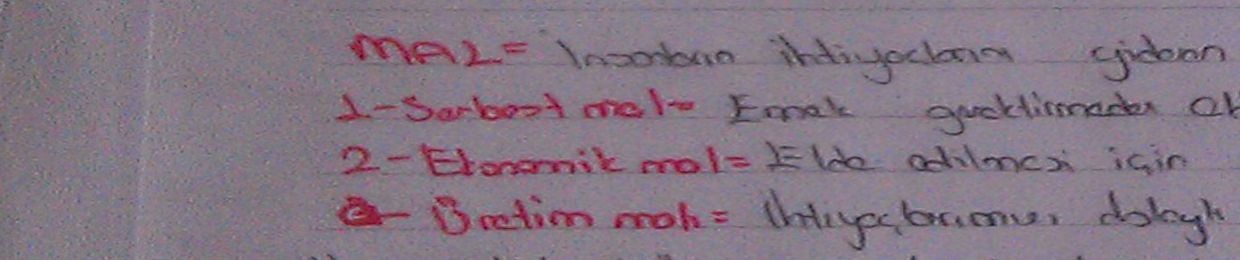 MAL= İnsanların ihtiyaçlarını gideren
1-Serbest mal= Emek gerektirmeden
2-Ekonomik mal= Elde edilmesi için
a- Üretim malı= İhtiyaçlarımızı dolaylı